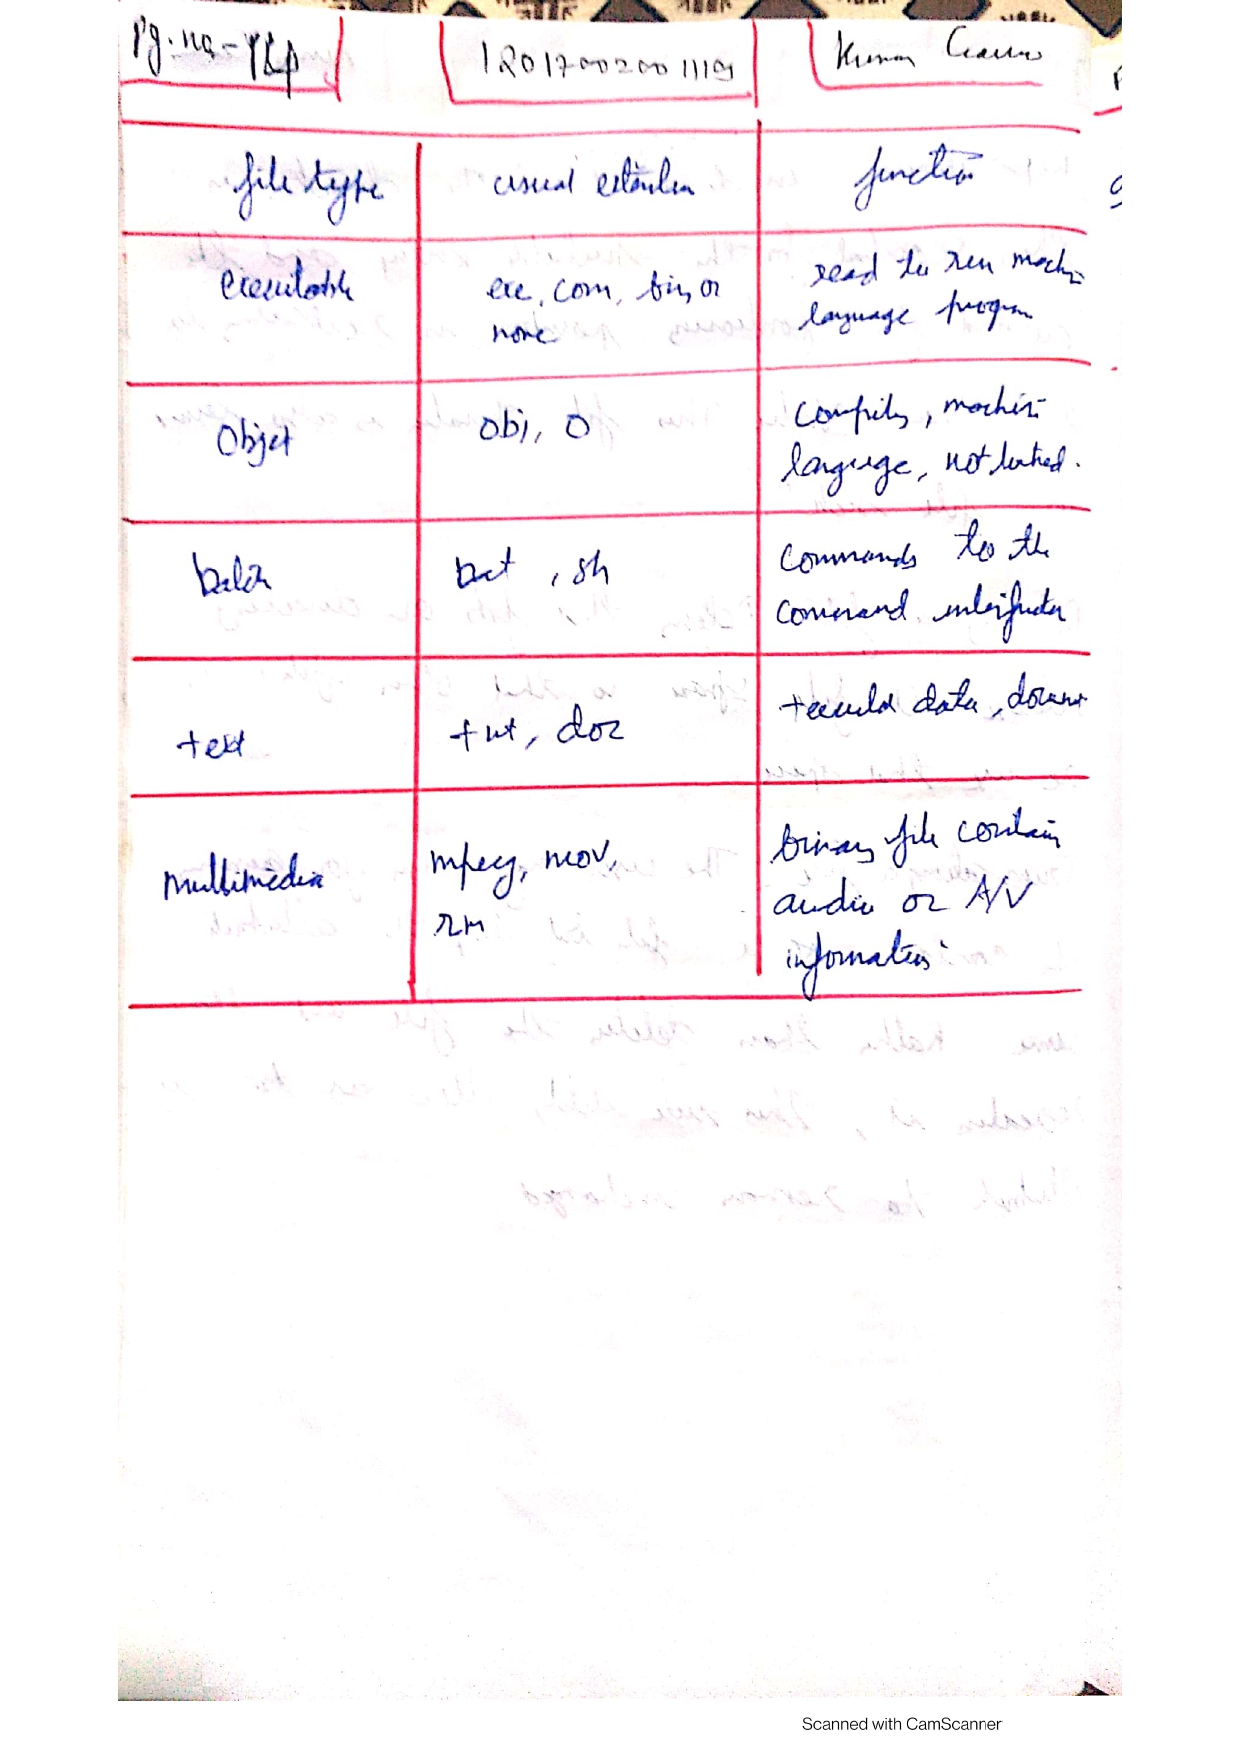 Pg. no -
12017002001119
Kumar
file type
usual extension
function
executable
exe, com, bin, or
none
read to run machine
language program
Objet
obj, o
compiled, machine
language, not linked.
batch
bat, sh
commands to the
command interpreter
text
txt, doc
textual data, document
multimedia
mpeg, mov,
rm
binary file contain
audio or A/V
information
Scanned with CamScanner